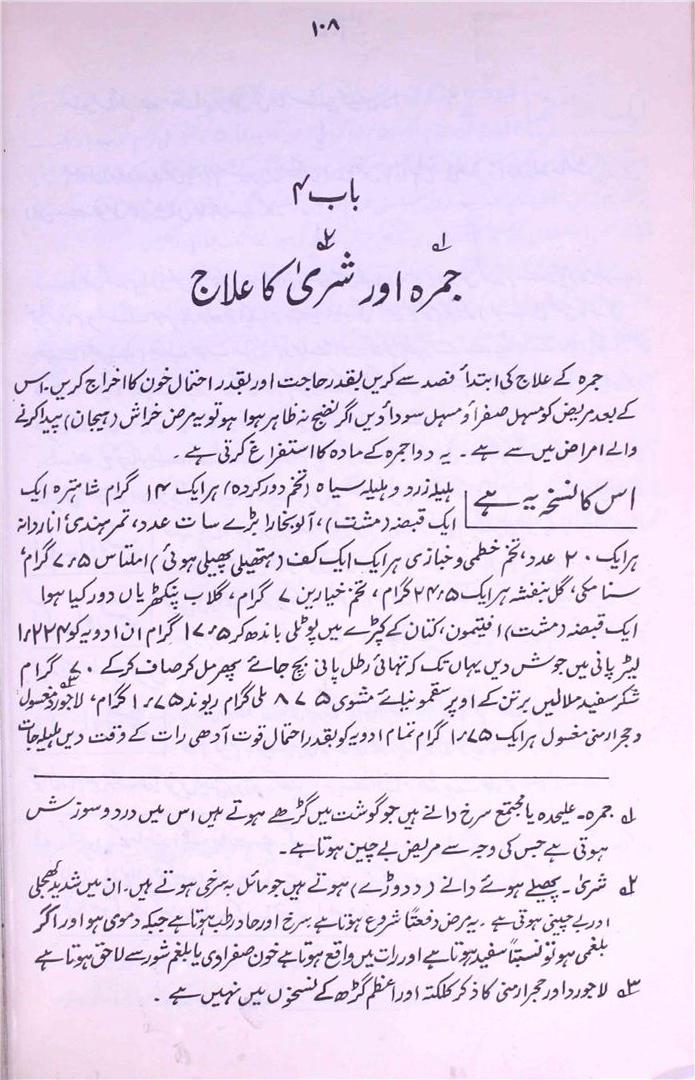 ۱۰۸
باب ۴
جمرہ۱؎ اور شریٰ۲؎ کا علاج
جمرہ کے علاج کی ابتدأ فصد سے کریں بقدر حاجت اور بقدر احتمال خون کا اخراج کریں۔ اس
کے بعد مریض کو مسہل صفرأ و مسہل سودأ دیں اگر نضج نہ ظاہر ہوا ہو تو یہ مرض خراش (ہیجان) پیدا کرنے
والے امراض میں سے ہے۔ یہ دوا جمرہ کے مادہ کا استفراغ کرتی ہے۔
اس کا نسخہ یہ ہے
ہلیلہ زرد و ہلیلہ سیاہ (تخم دور کردہ) ہر ایک ۱۴ گرام شاہترہ ایک
ایک قبضہ (مشت)، آلو بخارا بڑے سات عدد، تمر ہندی أ انار دانہ
ہر ایک ۲۰ عدد، تخم خطمی و خبازی ہر ایک ایک کف (ہتھیلی پھیلی ہوئی) املتاس ۷٫۵ گرام،
سنا مکی، گل بنفشہ ہر ایک ۲۴٫۵ گرام، تخم خیارین ۷ گرام، گلاب پنکھڑیاں دور کیا ہوا
ایک قبضہ (مشت) افتیمون، کتان کے کپڑے میں پوٹلی باندھ کر ۱۷٫۵ گرام ان ادویہ کو ۱٫۲۲۴
لیٹر پانی میں جوش دیں یہاں تک کہ تہائی رطل پانی بچ جائے پھر مل کر صاف کر کے ۷۰ گرام
شکر سفید ملالیں برتن کے اوپر سقمونیائے مشوی ۸۷۵ ملی گرام ریوند ۱٫۷۵ گرام، لاجورد۳؎ مغسول
و حجر ارمنی مغسول ہر ایک ۱٫۷۵ گرام تمام ادویہ کو بقدر احتمال قوت آدھی رات کے وقت دیں ہلیلہ جات
۱؎ جمرہ۔ علیحدہ یا مجتمع سرخ دانے ہیں جو گوشت میں گڑھے ہوتے ہیں اس میں درد و سوزش
ہوتی ہے جس کی وجہ سے مریض بے چین ہوتا ہے۔
۲؎ شریٰ۔ پھیلے ہوئے دانے (ددوڑے) ہوتے ہیں جو مائل بہ سرخی ہوتے ہیں۔ ان میں شدید کھجلی
اور بے چینی ہوتی ہے۔ یہ مرض دفعتاً شروع ہوتا ہے سرخ اور حار رطب ہوتا ہے جبکہ دموی ہو اور اگر
بلغمی ہو تو نسبتاً سفید ہوتا ہے اور رات میں واقع ہوتا ہے خون صفراوی یا بلغم شور سے لاحق ہوتا ہے
۳؎ لاجورد اور حجر ارمنی کا ذکر کلکتہ اور اعظم گڑھ کے نسخوں میں نہیں ہے۔